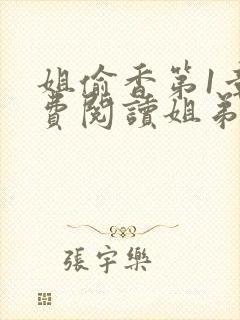 姐偷香第1章
費閱讀姐弟
張宇樂